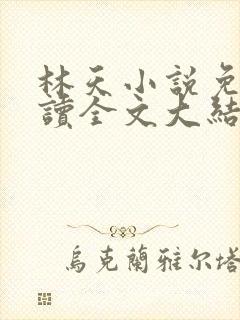 林天小説免
讀全文大結
烏克蘭雅尔塔